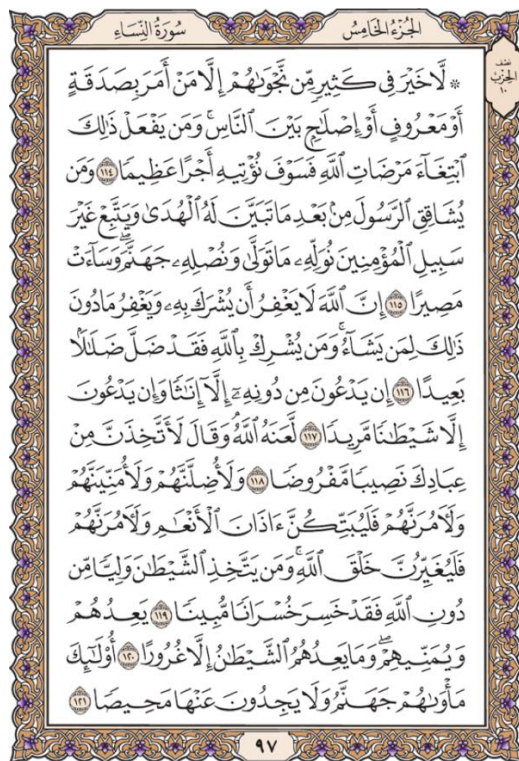 الجزء الخامس
سورة النساء
نصف
الحزب
١٠
۞ لَّا خَيْرَ فِي كَثِيرٍ مِّن نَّجْوَىٰهُمْ إِلَّا مَنْ أَمَرَ بِصَدَقَةٍ
أَوْ مَعْرُوفٍ أَوْ إِصْلَٰحٍۭ بَيْنَ ٱلنَّاسِۚ وَمَن يَفْعَلْ ذَٰلِكَ
ٱبْتِغَآءَ مَرْضَاتِ ٱللَّهِ فَسَوْفَ نُؤْتِيهِ أَجْرًا عَظِيمًا ١١٤ وَمَن
يُشَاقِقِ ٱلرَّسُولَ مِنۢ بَعْدِ مَا تَبَيَّنَ لَهُ ٱلْهُدَىٰ وَيَتَّبِعْ غَيْرَ
سَبِيلِ ٱلْمُؤْمِنِينَ نُوَلِّهِۦ مَا تَوَلَّىٰ وَنُصْلِهِۦ جَهَنَّمَۖ وَسَآءَتْ
مَصِيرًا ١١٥ إِنَّ ٱللَّهَ لَا يَغْفِرُ أَن يُشْرَكَ بِهِۦ وَيَغْفِرُ مَا دُونَ
ذَٰلِكَ لِمَن يَشَآءُۚ وَمَن يُشْرِكْ بِٱللَّهِ فَقَدْ ضَلَّ ضَلَٰلًۢا
بَعِيدًا ١١٦ إِن يَدْعُونَ مِن دُونِهِۦٓ إِلَّآ إِنَٰثًا وَإِن يَدْعُونَ
إِلَّا شَيْطَٰنًا مَّرِيدًا ١١٧ لَّعَنَهُ ٱللَّهُۘ وَقَالَ لَأَتَّخِذَنَّ مِنْ
عِبَادِكَ نَصِيبًا مَّفْرُوضًا ١١٨ وَلَأُضِلَّنَّهُمْ وَلَأُمَنِّيَنَّهُمْ
وَلَـَٔامُرَنَّهُمْ فَلَيُبَتِّكُنَّ ءَاذَانَ ٱلْأَنْعَٰمِ وَلَـَٔامُرَنَّهُمْ
فَلَيُغَيِّرُنَّ خَلْقَ ٱللَّهِۚ وَمَن يَتَّخِذِ ٱلشَّيْطَٰنَ وَلِيًّا مِّن
دُونِ ٱللَّهِ فَقَدْ خَسِرَ خُسْرَانًا مُّبِينًا ١١٩ يَعِدُهُمْ
وَيُمَنِّيهِمْۖ وَمَا يَعِدُهُمُ ٱلشَّيْطَٰنُ إِلَّا غُرُورًا ١٢٠ أُو۟لَٰٓئِكَ
مَأْوَىٰهُمْ جَهَنَّمُ وَلَا يَجِدُونَ عَنْهَا مَحِيصًا ١٢١
٩٧